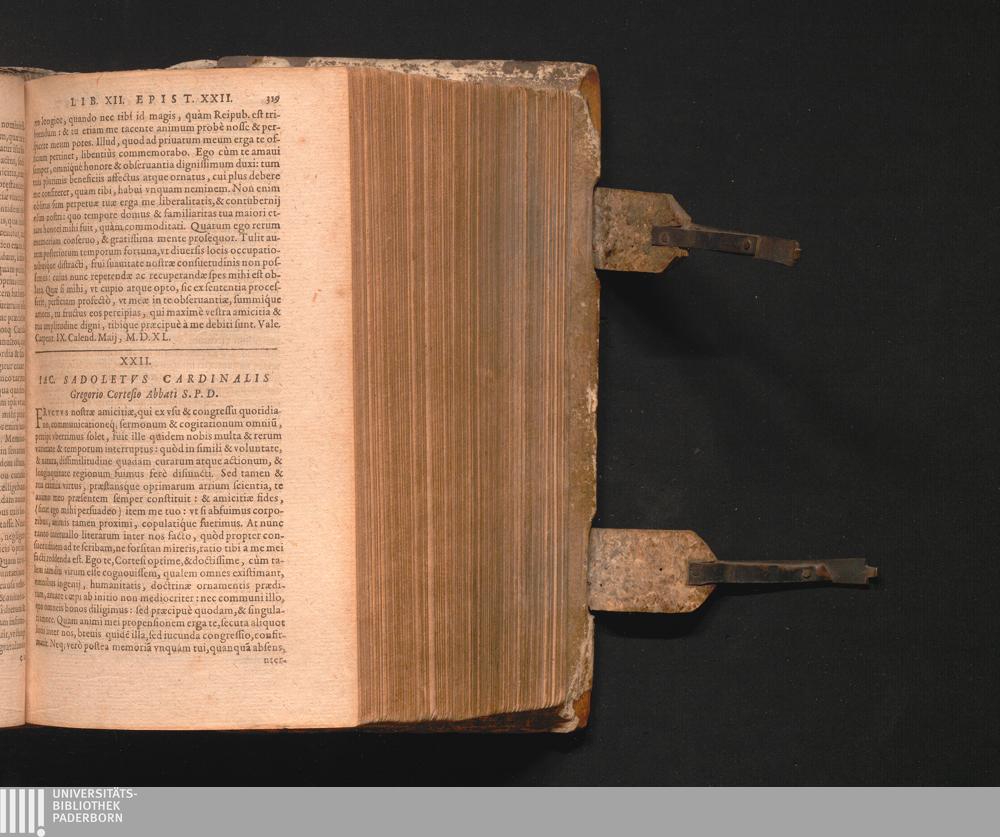 LIB. XII. EPIST. XXII. 319
longiǫr, quando nec tibi id magis, quàm Reipub. est tri-
buendum: & tu etiam me tacente animum probè nosse & per-
spicere meum potes. Illud, quod ad priuatum meum erga te of-
ficium pertinet, libentiùs commemorabo. Ego cùm te amaui
semper, omnique honore & obseruantia dignissimum duxi: tum
tuis plurimis beneficiis affectus atque ornatus, cui plus debere
me confiterer, quàm tibi, habui vnquam neminem. Non enim
oblitus sum perpetuæ tuæ erga me liberalitatis, & contubernij
nostri: quo tempore domus & familiaritas tua maiori et-
iam honori mihi fuit, quàm commoditati. Quarum ego rerum
memoriam conseruo, & gratissima mente prosequor. Tulit au-
tem posteriorum temporum fortuna, vt diuersis locis occupatio-
nibusque distracti, frui suauitate nostræ consuetudinis non pos-
semus: cuius nunc repetendæ ac recuperandæ spes mihi est ob-
lata. Quæ si mihi, vt cupio atque opto, sic ex sententia proces-
serit, perficiam profectò, vt meæ in te obseruantiæ, summique
amoris, tu fructus eos percipias, qui maximè vestra amicitia &
tua amplitudine digni, tibique præcipuè à me debiti sunt. Vale.
Carpent. IX. Calend. Maij, M.D.XL.
XXII.
IAC. SADOLETVS CARDINALIS
Gregorio Cortesio Abbati S.P.D.
FRVCTVS nostræ amicitiæ, qui ex vsu & congressu quotidia-
no, communicationeq; sermonum & cogitationum omniū,
percipi vberrimus solet, fuit ille quidem nobis multa & rerum
varietate & temporum interruptus: quòd in simili & voluntate,
& natura, dissimilitudine quadam curarum atque actionum, &
longinquitate regionum fuimus ferè disiuncti. Sed tamen &
tua eximia virtus, præstansque optimarum artium scientia, te
animo meo præsentem semper constituit: & amicitiæ fides,
(sicut ego mihi persuadeo) item me tuo: vt si abfuimus corpo-
ribus, animis tamen proximi, copulatique fuerimus. At nunc
tanto interuallo literarum inter nos facto, quòd propter con-
suetudinem ad te scribam, ne forsitan mireris, ratio tibi a me mei
facti reddenda est. Ego te, Cortesi optime, & doctissime, cùm ta-
lem iamdiu virum esse cognouissem, qualem omnes existimant,
omnibus ingenij, humanitatis, doctrinæ ornamentis prædi-
tum, amare cœpi ab initio non mediocriter: nec communi illo,
quo omneis bonos diligimus: sed præcipuè quodam, & singula-
ri amore. Quam animi mei propensionem erga te, secuta aliquot
annis inter nos, breuis quidē illa, sed iucunda congressio, confir-
mauit. Neq; verò postea memoriā vnquam tui, quanquā absens,
nter-
UNIVERSITÄTS-
BIBLIOTHEK
PADERBORN